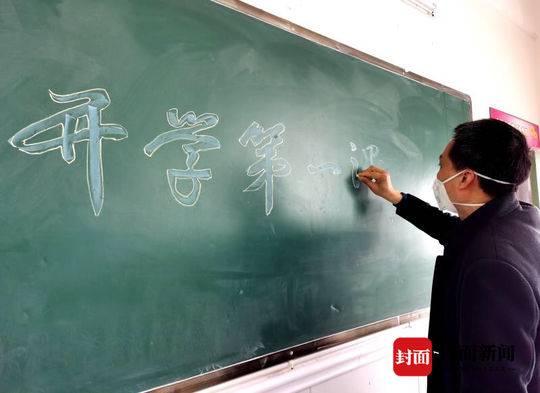 开学第一
封面 封面新闻